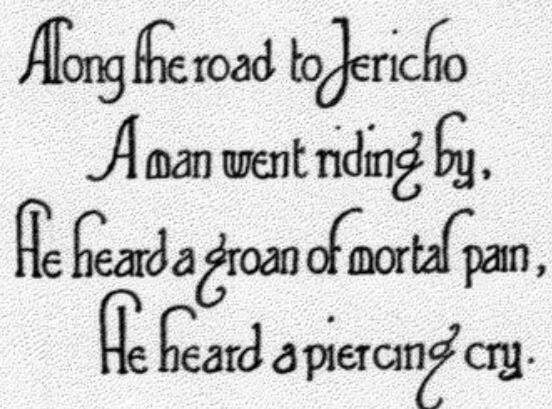 Along the road to Jericho
A man went riding by,
He heard a groan of mortal pain,
He heard a piercing cry.